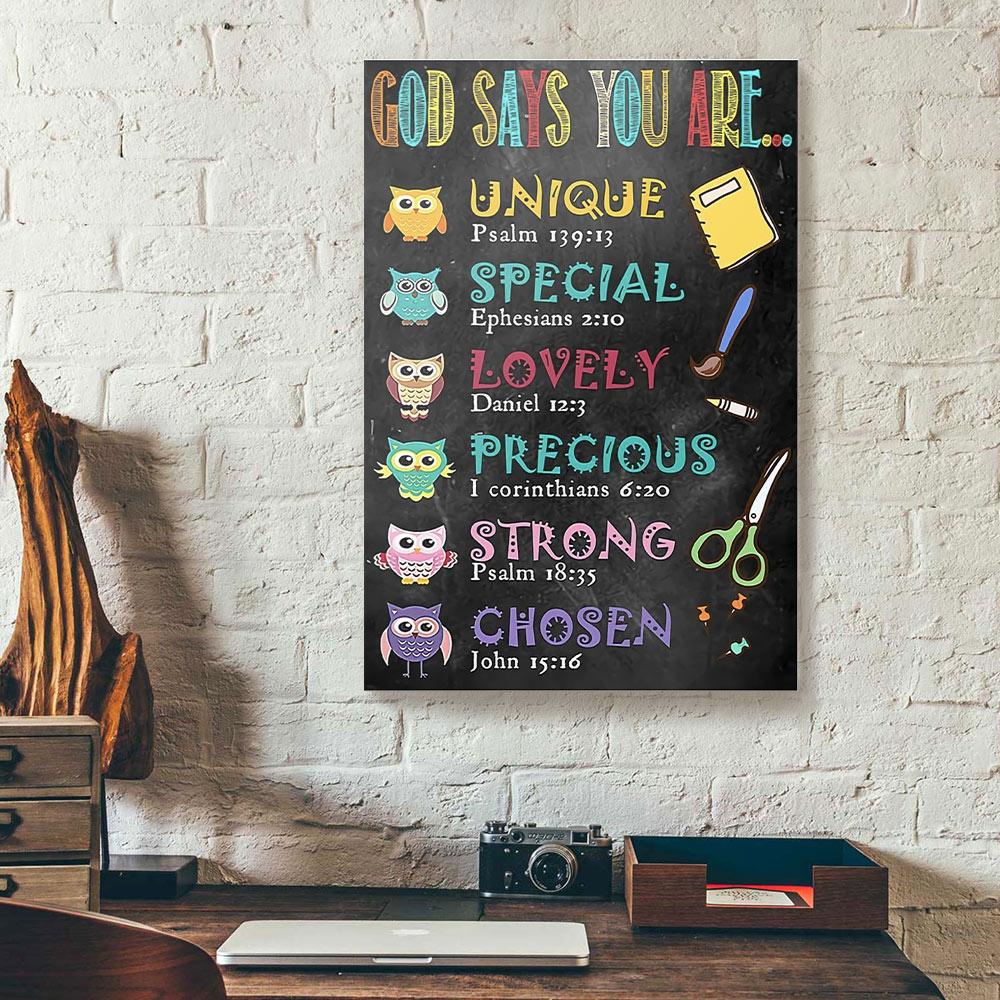 GOD SAYS YOU ARE...
UNIQUE
Psalm 139:13
SPECIAL
Ephesians 2:10
LOVELY
Daniel 12:3
PRECIOUS
I corinthians 6:20
STRONG
Psalm 18:35
CHOSEN
John 15:16